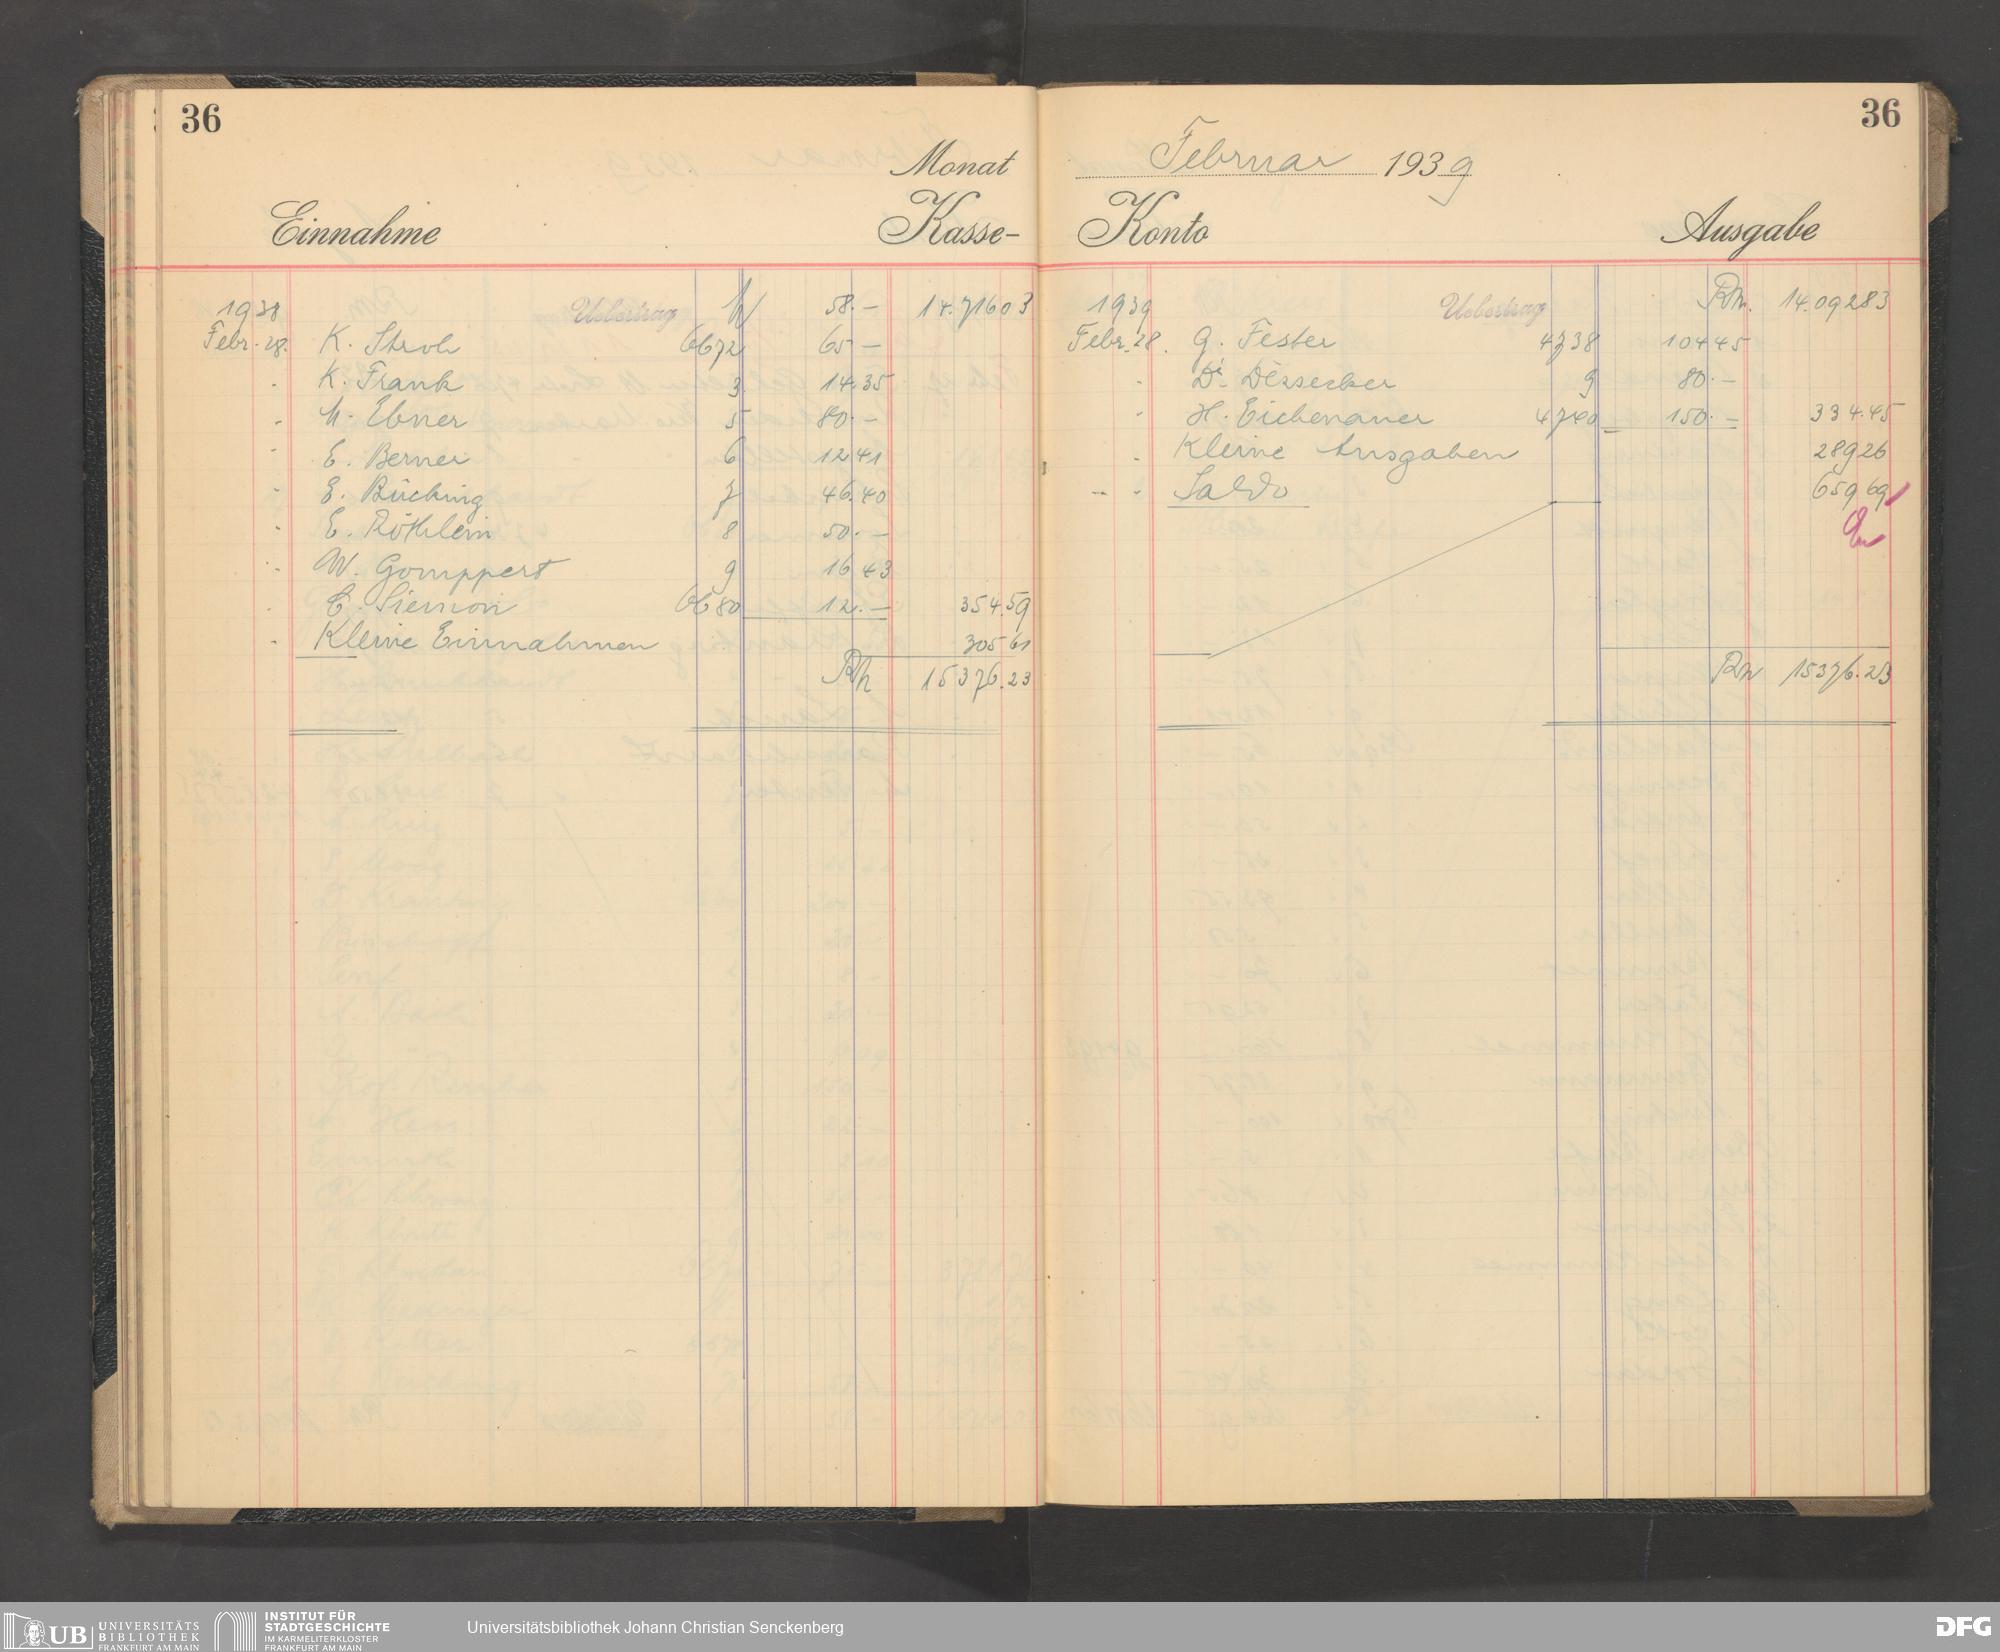 36
Monat
Einnahme Kasse-
1938 Uebertrag 58.— 14.71603
Febr. 28. K. Stroh 6672 65 —
" K. Frank 3 14.35
" M. Ebner 5 80.—
" E. Berner 6 12 41
" E. Bücking 7 46.40
" E. Röthlein 8 50.—
" W. Gomppert 9 16 43
" E. Siemon 6680 12.— 354.59
" Kleine Einnahmen 305 61
RM 15376.23
36
Februar 1939
Konto Ausgabe
1939 Uebertrag RM. 14.09283
Febr. 28. G. Fester 4738 104 45
" Dr. Dessecker 9 80.—
" H. Eichenauer 4740 150.— 334.45
" Kleine Ausgaben 289 26
" Saldo 659 69
RM 15376.23
UB UNIVERSITÄTS
BIBLIOTHEK
FRANKFURT AM MAIN
INSTITUT FÜR
STADTGESCHICHTE
IM KARMELITERKLOSTER
FRANKFURT AM MAIN
Universitätsbibliothek Johann Christian Senckenberg
DFG